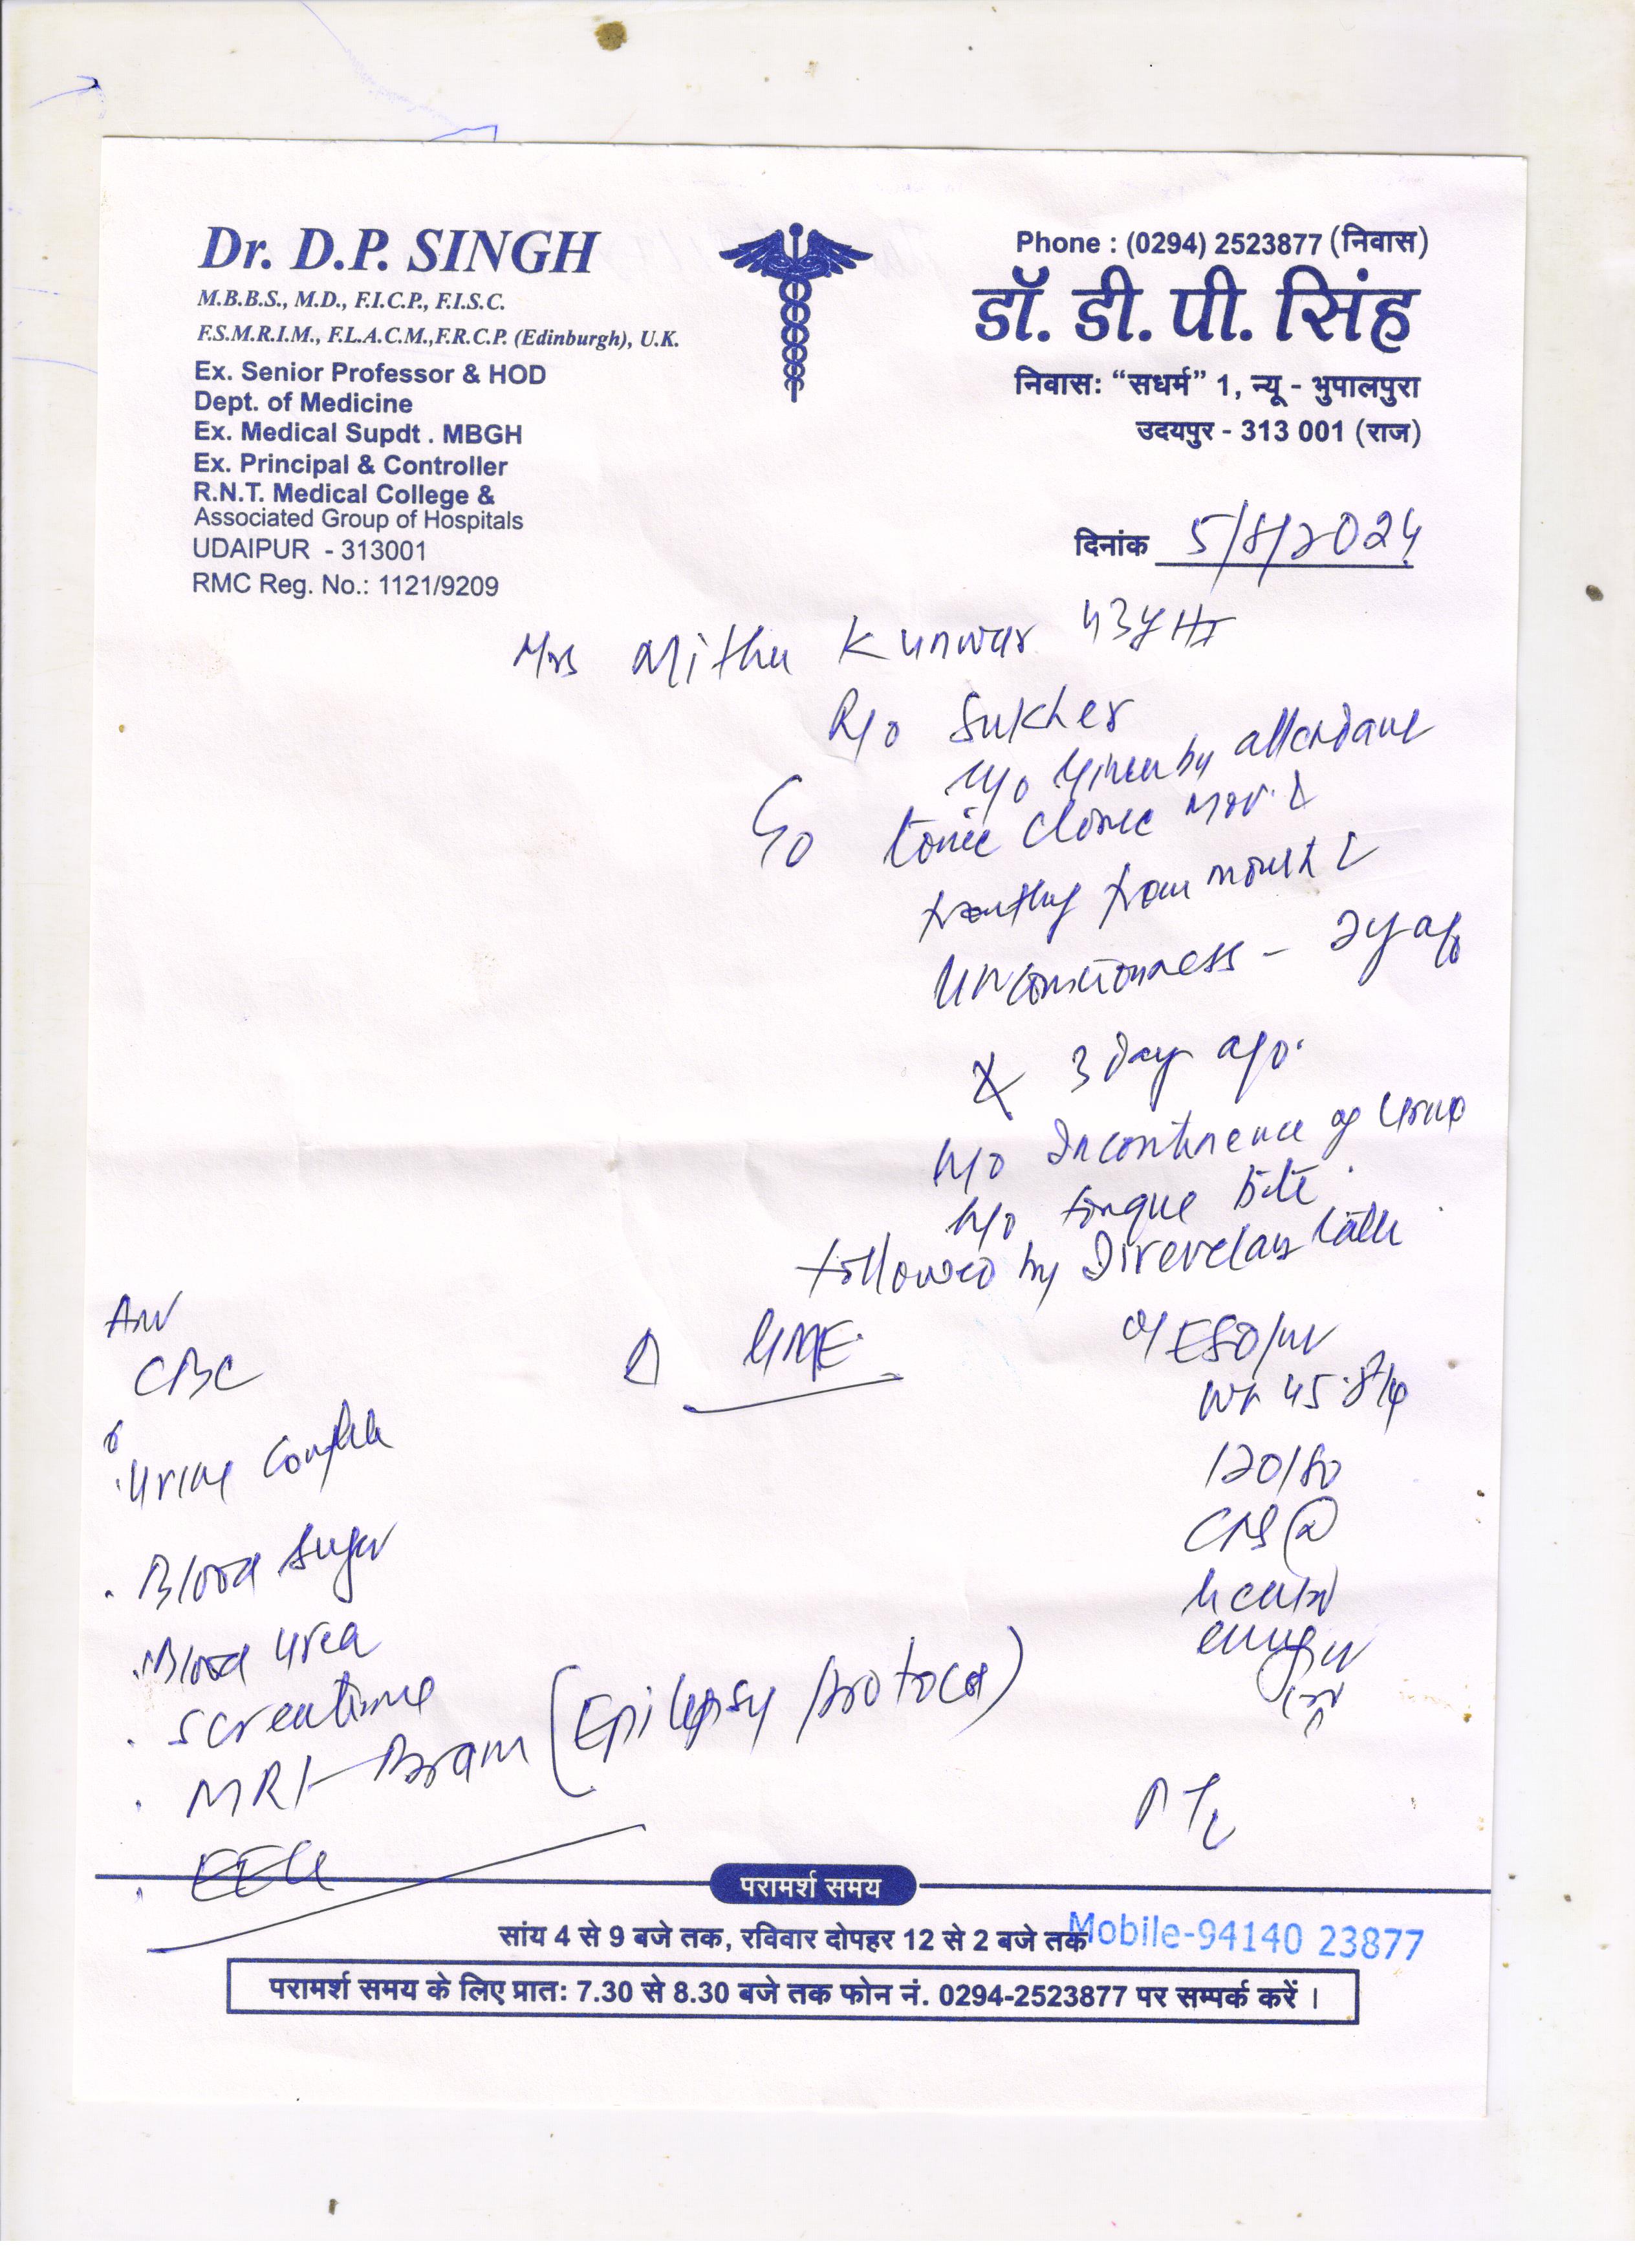 Dr. D.P. SINGH
M.B.B.S., M.D., F.I.C.P., F.I.S.C.
F.S.M.R.I.M., F.L.A.C.M.,F.R.C.P. (Edinburgh), U.K.
Ex. Senior Professor & HOD
Dept. of Medicine
Ex. Medical Supdt . MBGH
Ex. Principal & Controller
R.N.T. Medical College &
Associated Group of Hospitals
UDAIPUR - 313001
RMC Reg. No.: 1121/9209
Phone : (0294) 2523877 (निवास)
डॉ. डी. पी. सिंह
निवास: “सधर्म” 1, न्यू - भुपालपुरा
उदयपुर - 313 001 (राज)
दिनांक 5/8/2024
Mrs Mithu Kunwar 43y
R/o Sukher
H/o given by attendant
C/o tonic clonic
from mouth
unconsciousness - 2y ago
3 day ago.
H/o Incontinence of urine
H/o tongue bite
followed by
GME
O/E 80/m
Wt 45.8
120/80
CNS
CBC
Urine Complete
Blood Sugar
Blood Urea
S creatinine
MRI-Brain (Epilepsy protocol)
EEG
परामर्श समय
सांय 4 से 9 बजे तक, रविवार दोपहर 12 से 2 बजे तक
Mobile-94140 23877
परामर्श समय के लिए प्रात: 7.30 से 8.30 बजे तक फोन नं. 0294-2523877 पर सम्पर्क करें ।